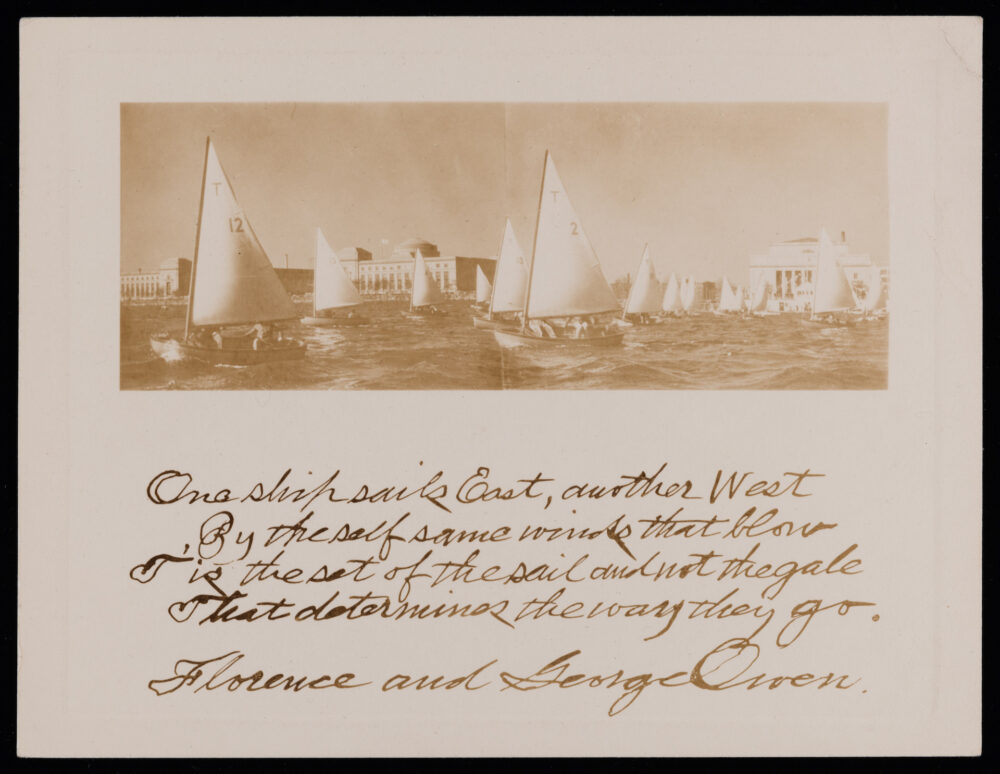 T
12
T
2
One ship sails East, another West
By the self same winds that blow
T'is the set of the sail and not the gale
That determines the way they go.
Florence and George Owen.